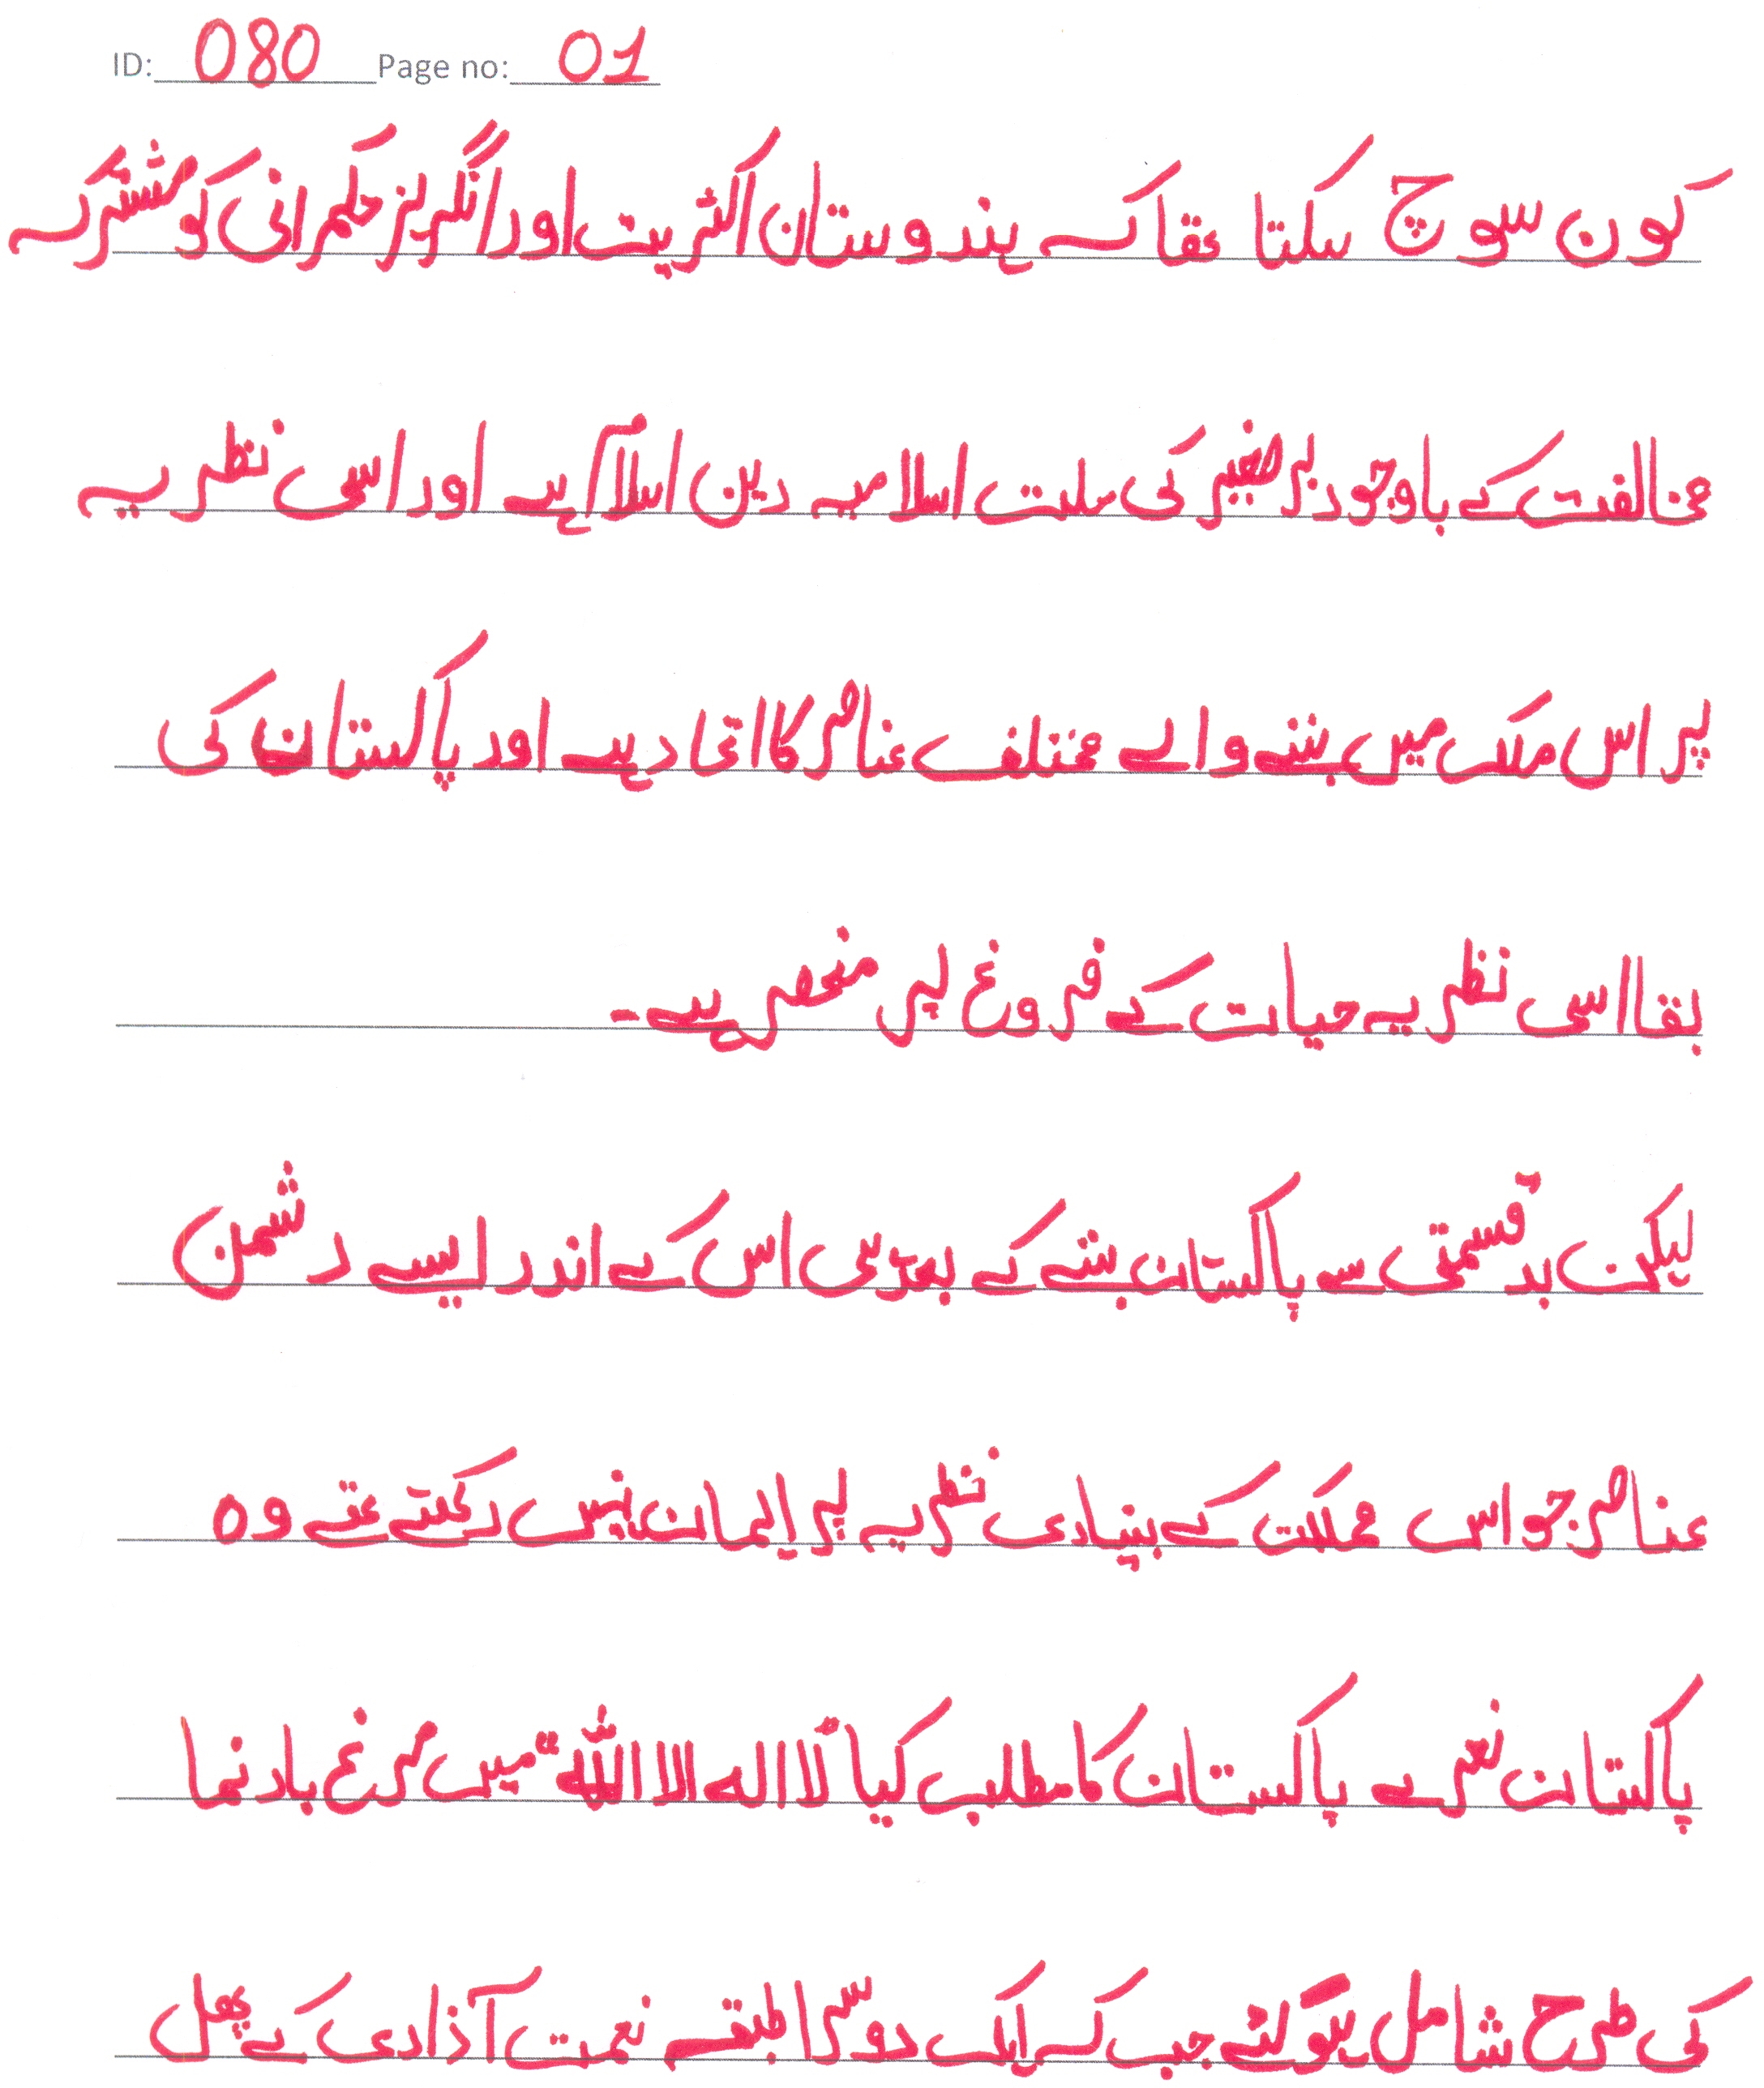 ID: 080 Page no: 01
کون سوچ سکتا تھا کہ ہندوستان اکثریت اور انگریز حکمرانی کو مشترکہ
مخالفت کے باوجود برصغیر کی ملت اسلامیہ دین اسلام ہے اور اسی نظریہ
پر اس ملک میں بسنے والے مختلف عناصر کا اتحاد ہے اور پاکستان کی
بقا اسی نظریہ حیات کے فروغ پر منحصر ہے۔
لیکن بدقسمتی سے پاکستان بنتے کے بعد ہی اس کے اندر ایسے دشمن
عناصر جو اس مملکت کے بنیادی نظریہ پر ایمان نہیں رکھتے تھے وہ
پاکستان نعرے پاکستان کا مطلب کیا "لا الہ الا اللہ" میں مرغ بادنما
کی طرح شامل ہوگئے جب کہ ایک دوسرا طبقہ نعمت آذادی کے پھل